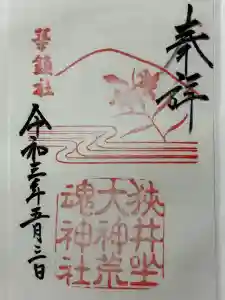 奉拝
華鎮社
令和三年五月三日
狭井坐
大神荒
魂神社